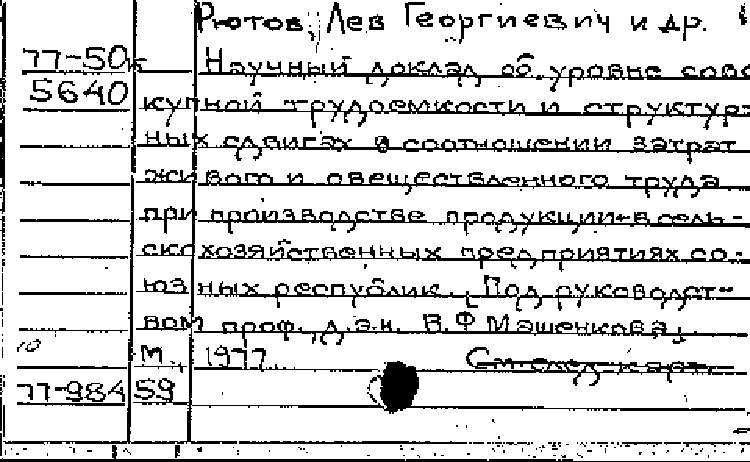 Рютов, Лев Георгиевич и др.
77-50к Научный доклад об уровне сово
5640 купной трудоемкости и структур-
ных сдвигах в соотношении затрат
живого и овеществленного труда
при производстве продукции в сель-
скохозяйственных предприятиях со-
юзных республик. [Под руководст-
вом проф., д.э.н. В.Ф Машенкова].
10 М., 1977. См след. карт.
77-984 59